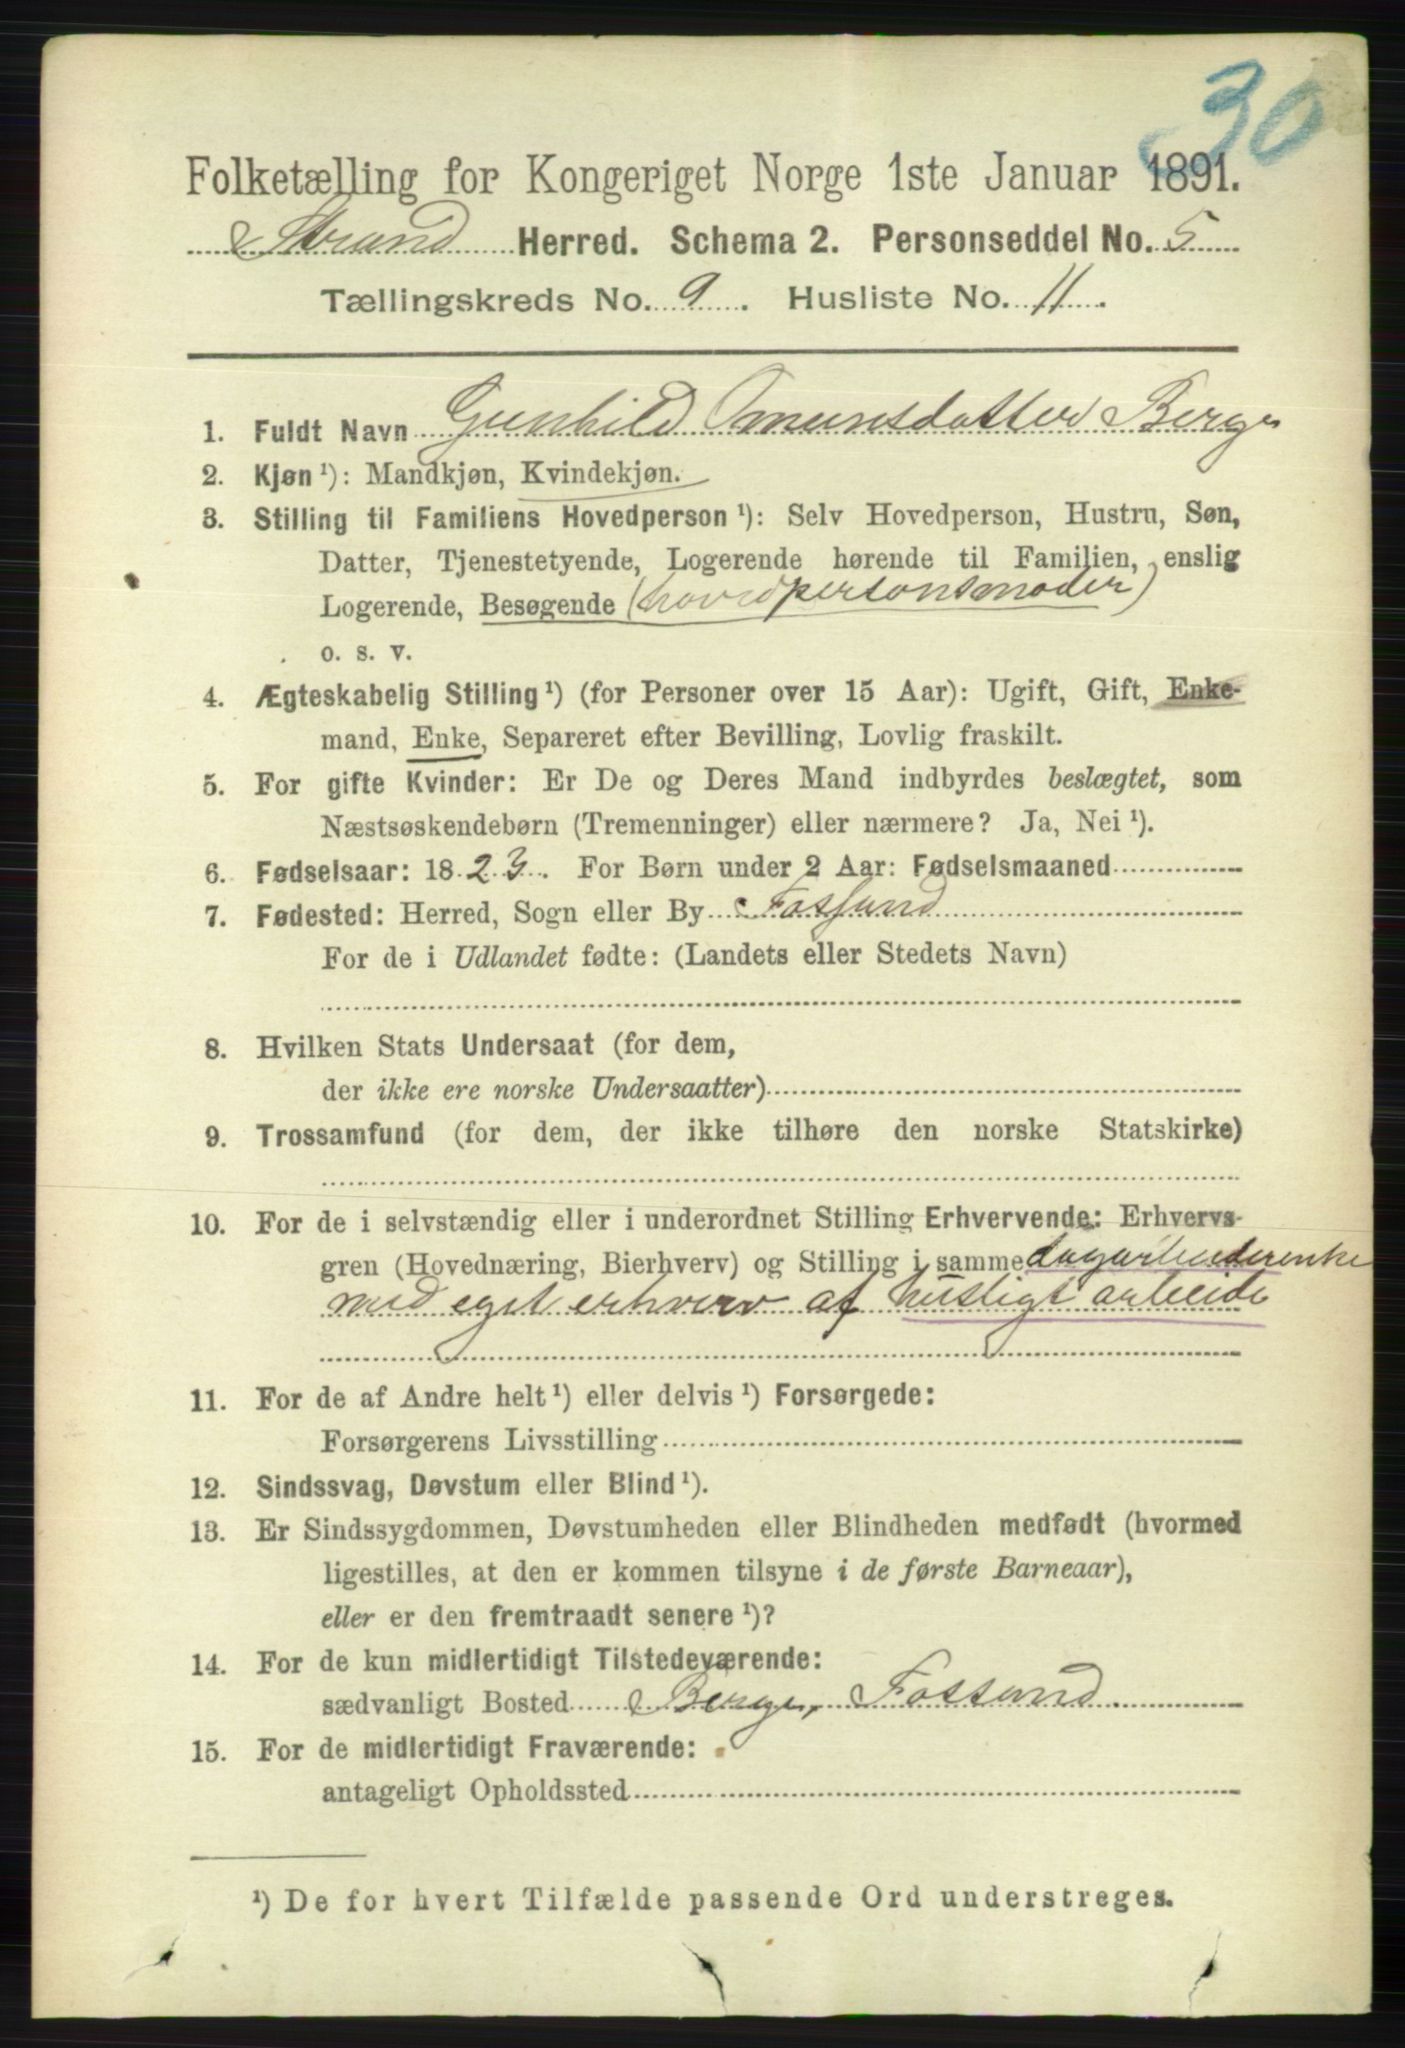 30
Folketælling for Kongeriget Norge 1ste Januar 1891.
Strand Herred. Schema 2. Personseddel No. 5
Tællingskreds No. 9. Husliste No. 11.
1. Fuldt Navn Gunhild Omunsdatter Berge
2. Kjøn ¹): Mandkjøn, Kvindekjøn.
3. Stilling til Familiens Hovedperson ¹): Selv Hovedperson, Hustru, Søn,
Datter, Tjenestetyende, Logerende hørende til Familien, enslig
Logerende, Besøgende (hovedpersonsmoder)
o. s. v.
4. Ægteskabelig Stilling ¹) (for Personer over 15 Aar): Ugift, Gift, Enke-
mand, Enke, Separeret efter Bevilling, Lovlig fraskilt.
5. For gifte Kvinder: Er De og Deres Mand indbyrdes beslægtet, som
Næstsøskendebørn (Tremenninger) eller nærmere? Ja, Nei ¹).
6. Fødselsaar: 1823. For Børn under 2 Aar: Fødselsmaaned
7. Fødested: Herred, Sogn eller By Fossand
For de i Udlandet fødte: (Landets eller Stedets Navn)
8. Hvilken Stats Undersaat (for dem,
der ikke ere norske Undersaatter)
9. Trossamfund (for dem, der ikke tilhøre den norske Statskirke)
10. For de i selvstændig eller i underordnet Stilling Erhvervende: Erhvervs-
gren (Hovednæring, Bierhverv) og Stilling i samme dagarbeiderenke
med eget erhverv af husligt arbeide
11. For de af Andre helt ¹) eller delvis ¹) Forsørgede:
Forsørgerens Livsstilling
12. Sindssvag, Døvstum eller Blind ¹).
13. Er Sindssygdommen, Døvstumheden eller Blindheden medfødt (hvormed
ligestilles, at den er kommen tilsyne i de første Barneaar),
eller er den fremtraadt senere ¹)?
14. For de kun midlertidigt Tilstedeværende:
sædvanligt Bosted Berge, Fossand.
15. For de midlertidigt Fraværende:
antageligt Opholdssted
¹) De for hvert Tilfælde passende Ord understreges.